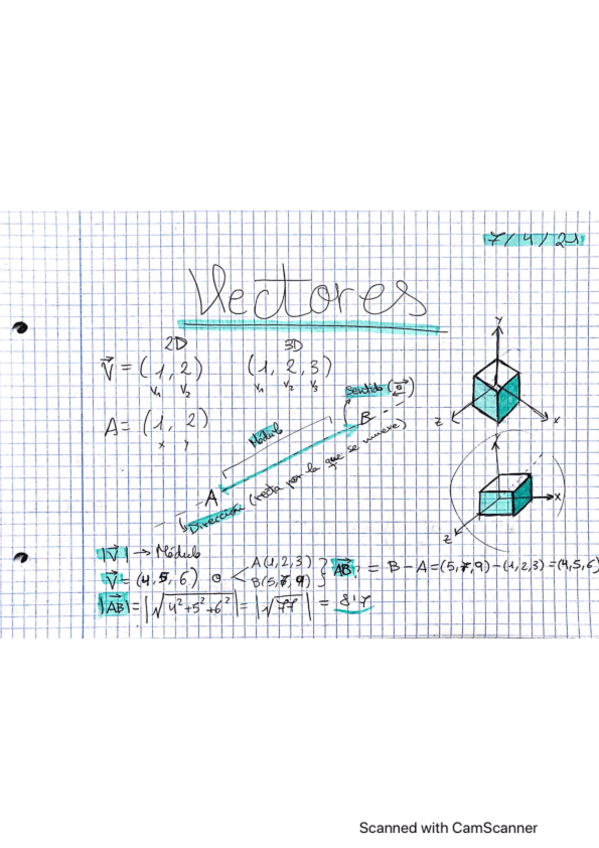 7/4/21
Vectores
2D 3D
V⃗ = (1, 2) (1, 2, 3)
V₁ V₂ V₁ V₂ V₃
A = (1, 2)
x y
Sentido (
Módulo
B
A
Dirección (recta por la que se mueve)
Y
Z X
Y
X
Z
|V⃗| → Módulo
V⃗ = (4, 5, 6) o A(1, 2, 3) B(5, 7, 9) } AB⃗ = B - A = (5, 7, 9) - (1, 2, 3) = (4, 5, 6)
|AB⃗| = |√4²+5²+6²| = |√77| = 8'7
Scanned with CamScanner